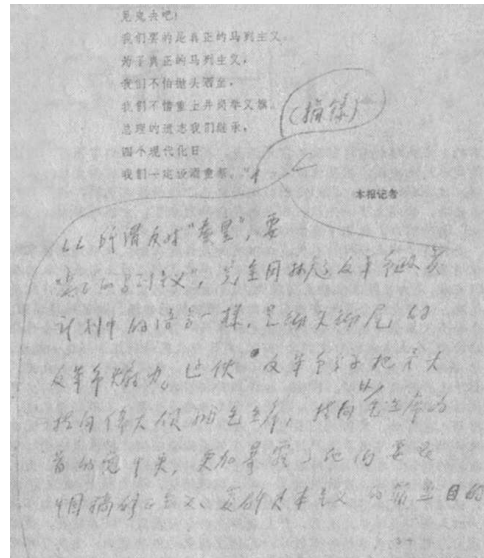 见鬼去吧!
我们要的是真正的马列主义。
为了真正的马列主义,
我们不怕抛头洒血,
我们不惜重上井岗举义旗。
总理的遗志我们继承,
四个现代化日
我们一定设酒重祭。"
(摘录)
本报记者
所谓反对"秦皇",要
"真正的马列主义",完全同林彪反革命政变
计划中的语言一样,是彻头彻尾的
反革命煽动。这伙反革命分子把矛头
指向伟大领袖毛主席,指向以毛主席为
首的党中央,更加暴露了他们要
搞修正主义、复辟资本主义的罪恶目的